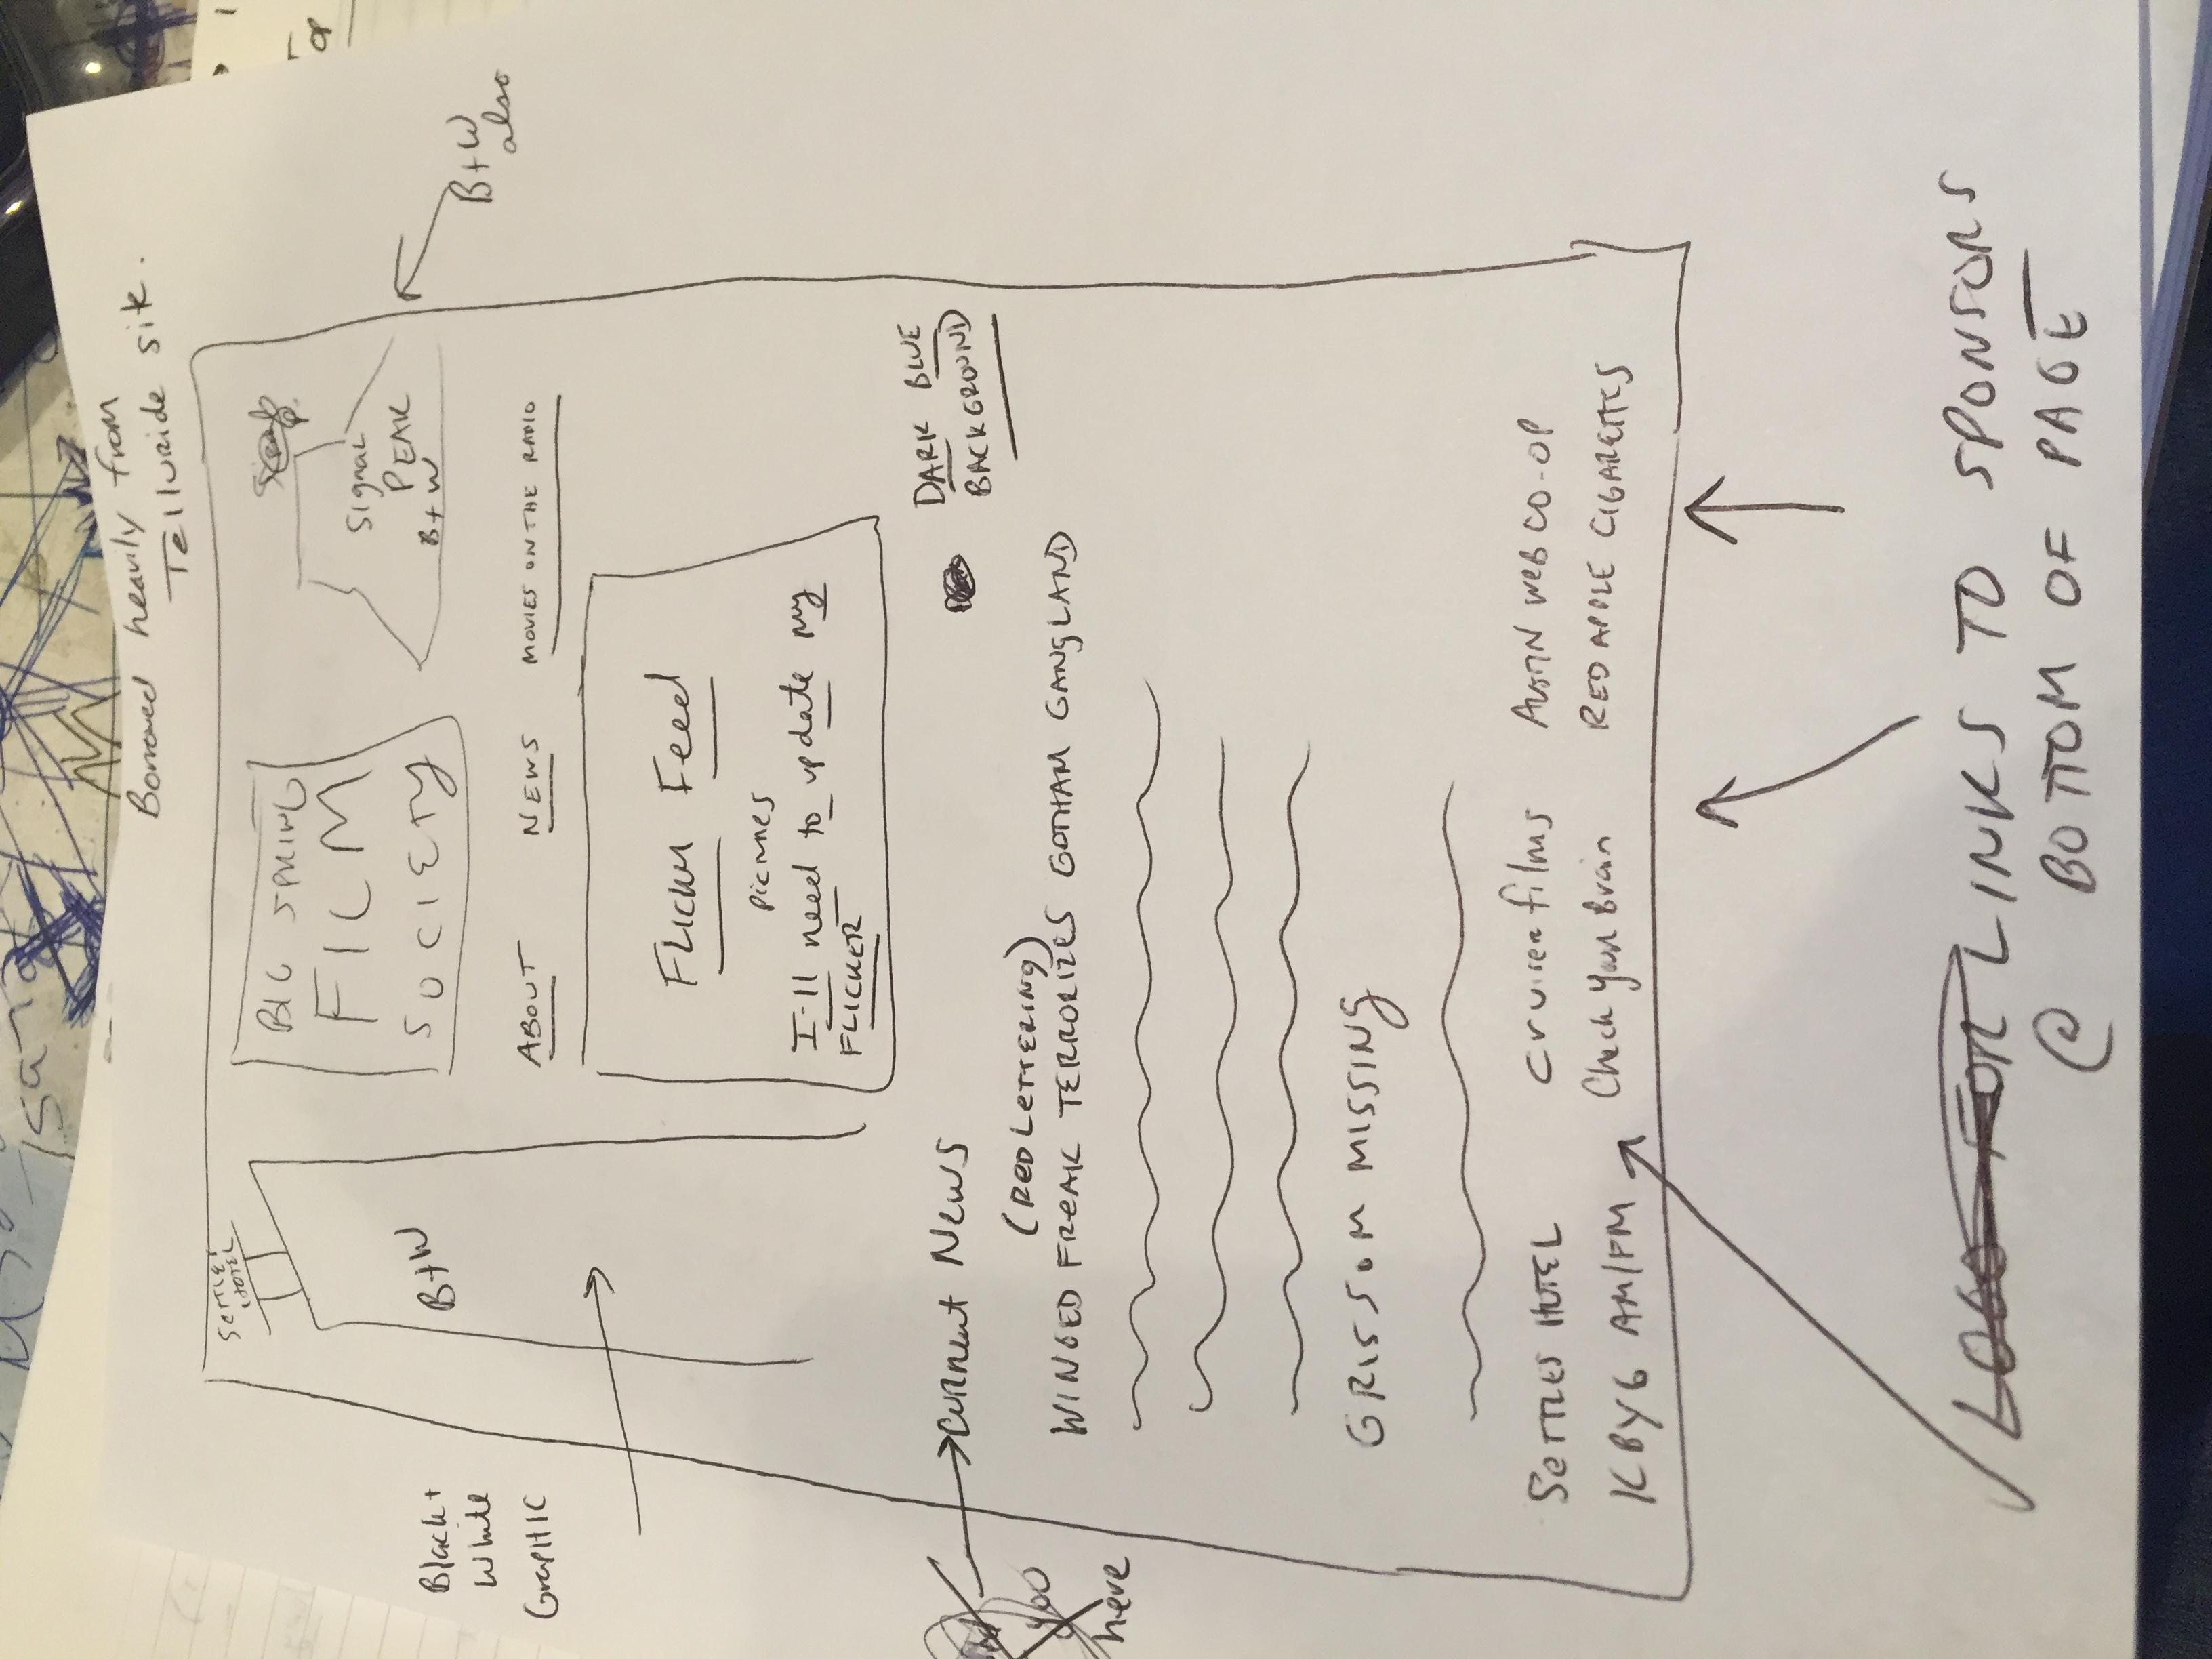 Borrowed heavily from
Telluride site.
SETTLES
HOTEL
BIG SPRING
FILM
SOCIETY
Signal
PEAK
B+W
B+W
Black +
White
GRAPHIC
B+W
also
ABOUT NEWS MOVIES ON THE RADIO
FLICKR Feed
pictures
I'll need to update my
FLICKER
Current News
DARK BLUE
BACKGROUND
(RED LETTERING)
WINGED FREAK TERRORIZES GOTHAM GANGLAND
you
here
GRISSOM MISSING
SETTLES HOTEL cruiser films AUSTIN WEB CO-OP
KBYG AM/FM Check Your Brain RED APPLE CIGARETTES
LOGO FOR LINKS TO SPONSORS
@ BOTTOM OF PAGE